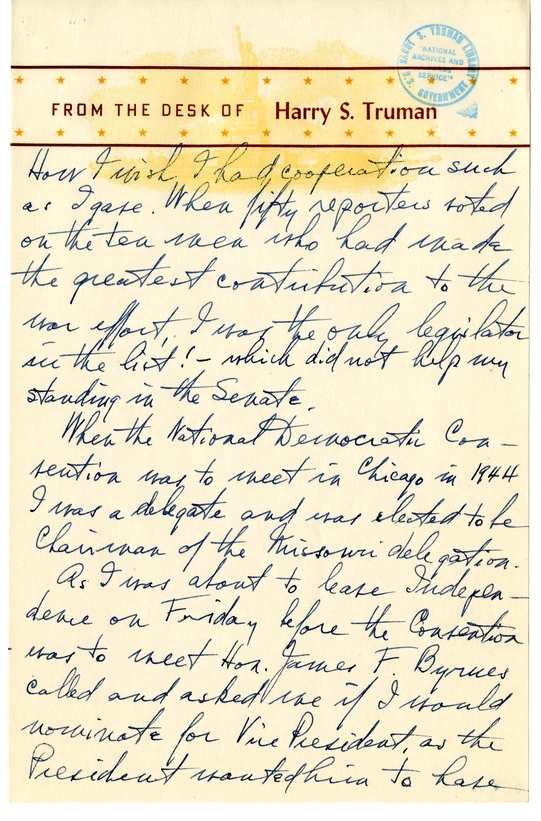 HARRY S. TRUMAN LIBRARY
"NATIONAL
ARCHIVES AND
RECORDS
SERVICE"
U.S. GOVERNMENT
FROM THE DESK OF Harry S. Truman
How I wish I had cooperation such
as I gave. When fifty reporters voted
on the ten men who had made
the greatest contribution to the
war effort, I was the only legislator
in the list! - which did not help my
standing in the Senate.
When the National Democratic Con-
vention was to meet in Chicago in 1944
I was a delegate and was elected to be
Chairman of the Missouri delegation.
As I was about to leave Indepen-
dence on Friday before the Convention
was to meet Hon. James F. Byrnes
called and asked me if I would
nominate for Vice President, as the
President wanted him to have